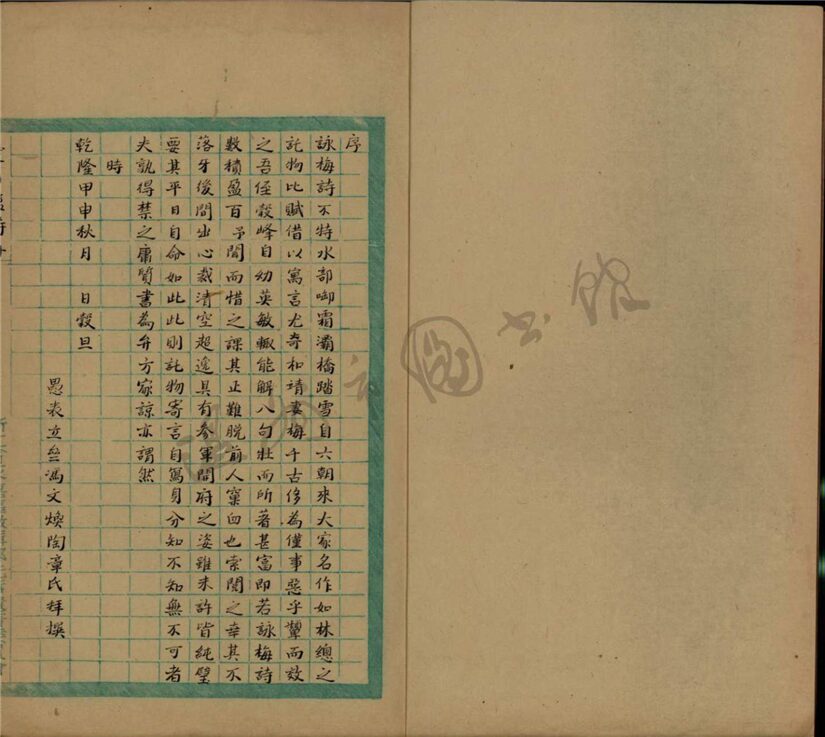 序
詠梅詩不特水部啣霜灞橋踏雪自六朝來大家名作如林總之
託物比賦借以寓言尤奇和靖妻梅千古侈為僅事惡乎顰而效
之吾侄穀峰自幼英敏輒能解八句壯而所著甚富即若詠梅詩
数積盈百予閱而惜之課其正難脫前人窠臼也索閱之幸其不
落牙後間出心裁清空超逸具有參軍開府之姿雖未許皆純璧
要其平日自命如此此則託物寄言自寫身分知不知無不可者
夫孰得禁之庸質書為弁方家諒亦謂然
時
乾隆甲申秋月 日穀旦
愚表立壂馮文煥陶章氏拜撰
圖書館